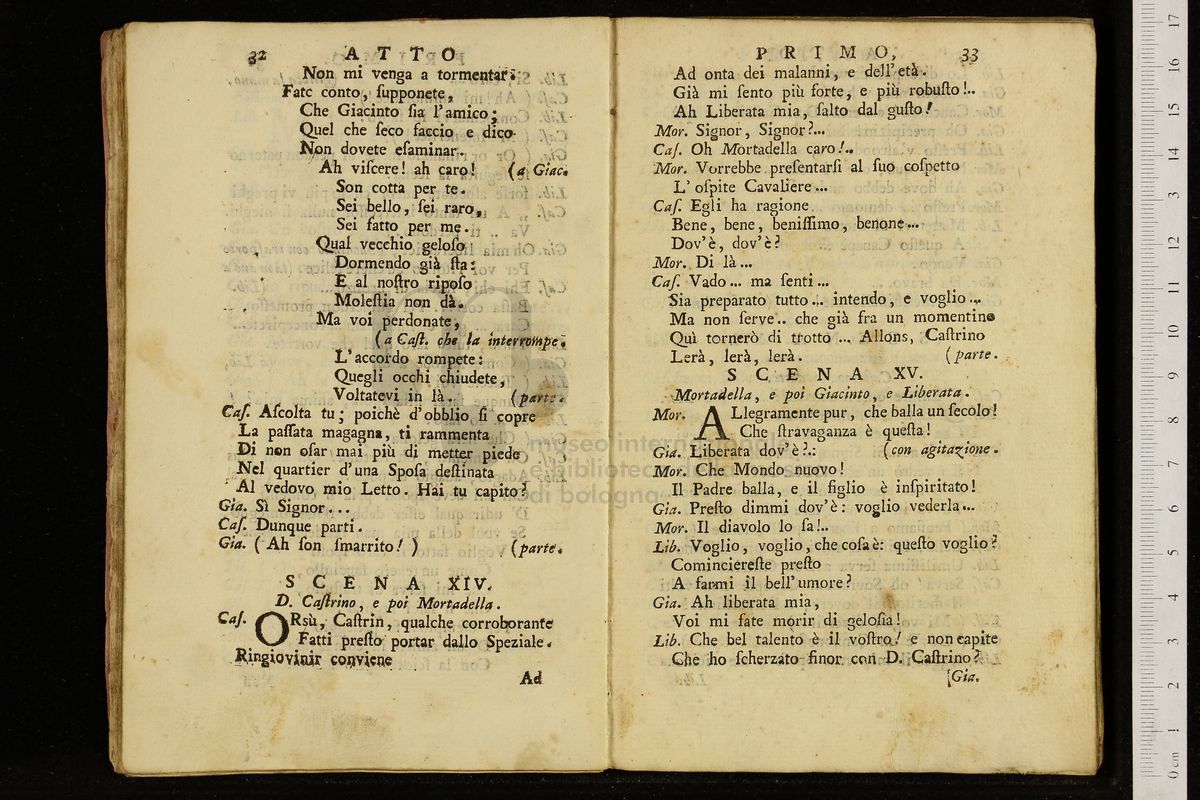 32 ATTO
Non mi venga a tormentar:
Fate conto, ſupponete,
Che Giacinto ſia l'amico;
Quel che ſeco faccio e dico
Non dovete eſaminar.
Ah viſcere! ah caro! (a Giac.
Son cotta per te.
Sei bello, ſei raro,
Sei fatto per me.
Qual vecchio geloſo
Dormendo già ſta:
E al noſtro ripoſo
Moleſtia non dà.
Ma voi perdonate,
(a Caſt. che la interrompe.
L'accordo rompete:
Quegli occhi chiudete,
Voltatevi in là. (parte.
Caſ. Aſcolta tu; poichè d'obblio ſi copre
La paſſata magagna, ti rammenta
Di non oſar mai più di metter piede
Nel quartier d'una Spoſa deſtinata
Al vedovo mio Letto. Hai tu capito?
Gia. Sì Signor...
Caſ. Dunque parti.
Gia. (Ah ſon ſmarrito!) (parte.
SCENA XIV.
D. Caſtrino, e poi Mortadella.
Caſ. ORsù, Caſtrin, qualche corroborante
Fatti preſto portar dallo Speziale.
Ringiovinir conviene
Ad
PRIMO, 33
Ad onta dei malanni, e dell'età.
Già mi ſento più forte, e più robuſto!..
Ah Liberata mia, ſalto dal guſto!
Mor. Signor, Signor?...
Caſ. Oh Mortadella caro!..
Mor. Vorrebbe preſentarſi al ſuo coſpetto
L'oſpite Cavaliere...
Caſ. Egli ha ragione
Bene, bene, beniſſimo, benone...
Dov'è, dov'è?
Mor. Di là...
Caſ. Vado... ma ſenti...
Sia preparato tutto... intendo, e voglio...
Ma non ſerve.. che già fra un momentino
Quì tornerò di trotto... Allons, Caſtrino
Lerà, lerà, lerà. (parte.
SCENA XV.
Mortadella, e poi Giacinto, e Liberata.
Mor. ALlegramente pur, che balla un ſecolo!
Che ſtravaganza è queſta!
Gia. Liberata dov'è?.: (con agitazione.
Mor. Che Mondo nuovo!
Il Padre balla, e il figlio è inſpiritato!
Gia. Preſto dimmi dov'è: voglio vederla...
Mor. Il diavolo lo ſa!..
Lib. Voglio, voglio, che coſa è: queſto voglio?
Cominciereſte preſto
A farmi il bell'umore?
Gia. Ah liberata mia,
Voi mi fate morir di geloſia!
Lib. Che bel talento è il voſtro! e non capite
Che ho ſcherzato finor con D. Caſtrino?
[Gia.
museo internazionale
e biblioteca della musica
di bologna
0 cm 1 2 3 4 5 6 7 8 9 10 11 12 13 14 15 16 17